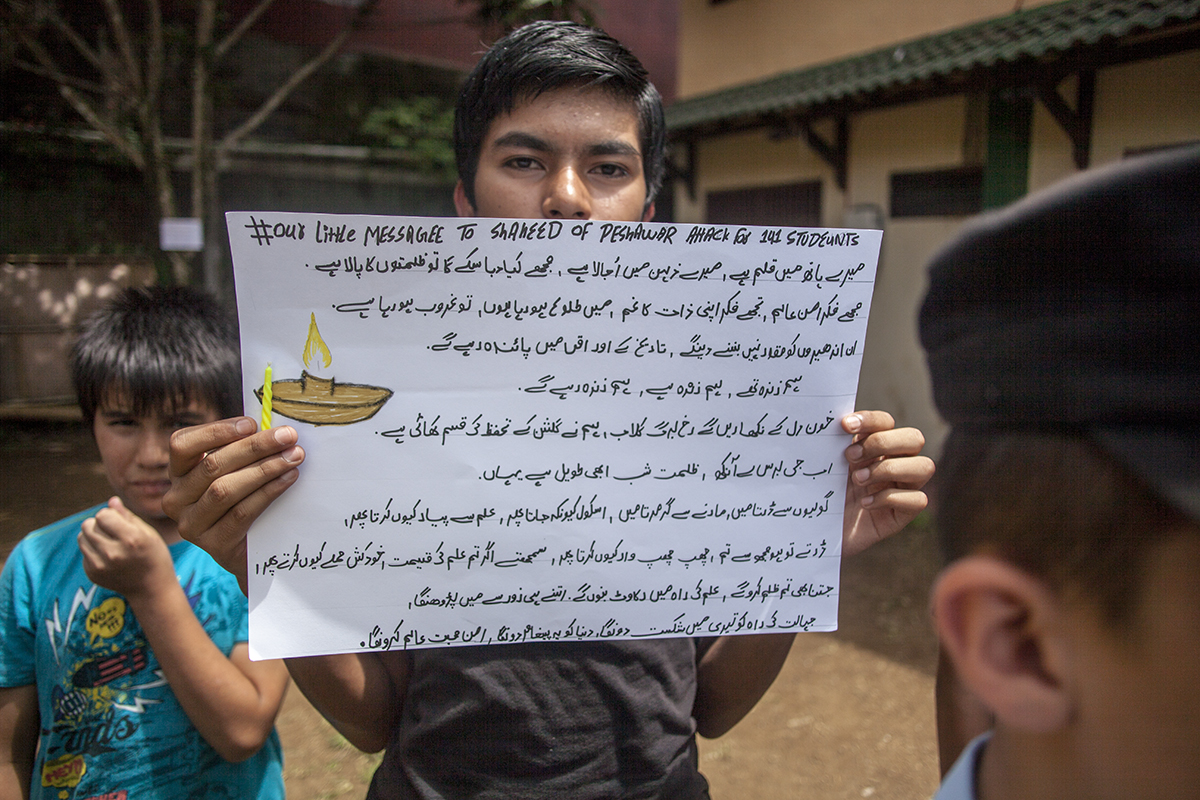 #OUR LittLE MESSAGEE TO SHAHEED OF PESHAWAR AttACK for 141 STUDEUNTS
میرے ہاتھ میں قلم ہے, میرے ذہن میں اُجالا ہے, مجھے کیا دبا سکے گا تو ظلمتوں کا پالا ہے.
مجھے فکر امن عالم, تجھے فکر اپنی ذات کا غم, میں طلوع ہو رہا ہوں, تو غروب ہو رہا ہے.
ان اندھیروں کو مقدر نہیں بننے دینگے, تاریخ کے اوراق میں پائندہ رہے گے.
ہم زندہ تھے, ہم زندہ ہے, ہم زندہ رہے گے.
خون دل کے نکھاریں گے رخ برگ گلاب, ہم نے گلشن کے تحفظ کی قسم کھائی ہے.
اب جی برس ہے آنکھ, ظلمت شب ابھی طویل ہے یہاں.
گولیوں سے ڑتا میں, مارنے سے گر مرتا میں, اسکول کیونکہ جاتا پھر, علم سے پیار کیوں کرتا پھر,
ڑرتے تو ہو مجھ سے تم, چھپ چھپ وار کیوں کرتا پھر, سمجھتے اگر تم علم کی قیمت, خودکش حملے کیوں کرتے پھر,
جتنا بھی تم ظلم کروگے, علم کی راہ میں رکاوٹ بنوں گے, اتنے ہی زور سے میں پڑھونگا,
جہالت کی راہ کو تیری میں شکست دونگا, دنیا کو یہ پیغام دونگا, امن محبت عالم کرونگا.
NO